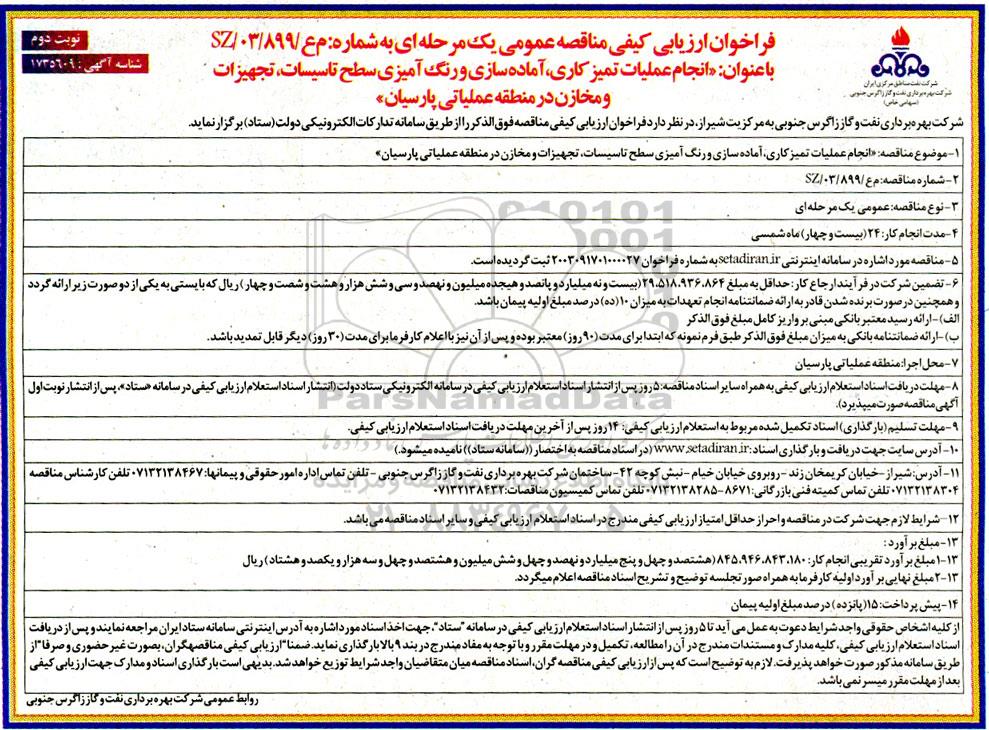 فراخوان ارزیابی کیفی مناقصه عمومی یک مرحله ای به شماره: م ع/۰۳/۸۹۹/SZ
با عنوان: «انجام عملیات تمیز کاری، آماده سازی و رنگ آمیزی سطح تاسیسات، تجهیزات
و مخازن در منطقه عملیاتی پارسیان»
نوبت دوم
شناسه آگهی: ۱۷۳۵۶۰۹
شرکت نفت مناطق مرکزی ایران
شرکت بهره برداری نفت و گاز زاگرس جنوبی
(سهامی خاص)
شرکت بهره برداری نفت و گاز زاگرس جنوبی به مرکزیت شیراز، در نظر دارد فراخوان ارزیابی کیفی مناقصه فوق الذکر را از طریق سامانه تدارکات الکترونیکی دولت (ستاد) برگزار نماید.
۱-موضوع مناقصه: «انجام عملیات تمیز کاری، آماده سازی و رنگ آمیزی سطح تاسیسات، تجهیزات و مخازن در منطقه عملیاتی پارسیان»
۲-شماره مناقصه: م ع/۰۳/۸۹۹/SZ
۳-نوع مناقصه: عمومی یک مرحله ای
۴-مدت انجام کار: ۲۴ (بیست و چهار) ماه شمسی
۵-مناقصه مورد اشاره در سامانه اینترنتی setadiran.ir به شماره فراخوان ۲۰۰۳۰۹۱۷۰۱۰۰۰۰۲۷ ثبت گردیده است.
۶-تضمین شرکت در فرآیند ارجاع کار: حداقل به مبلغ ۲۹،۵۱۸،۹۳۶،۸۶۴ (بیست و نه میلیارد و پانصد و هیجده میلیون و نهصد و سی و شش هزار و هشت و شصت و چهار) ریال که بایستی به یکی از دو صورت زیر ارائه گردد
و همچنین در صورت برنده شدن قادر به ارائه ضمانتنامه انجام تعهدات به میزان ۱۰ (ده) درصد مبلغ اولیه پیمان باشد.
الف)-ارائه رسید معتبر بانکی مبنی بر واریز کامل مبلغ فوق الذکر
ب)-ارائه ضمانتنامه بانکی به میزان مبلغ فوق الذکر طبق فرم نمونه که ابتدا برای مدت (۹۰ روز) معتبر بوده و پس از آن نیز با اعلام کارفرما برای مدت (۳۰ روز) دیگر قابل تمدید باشد.
۷-محل اجرا: منطقه عملیاتی پارسیان
۸-مهلت دریافت اسناد استعلام ارزیابی کیفی به همراه سایر اسناد مناقصه: ۵ روز پس از انتشار اسناد استعلام ارزیابی کیفی در سامانه الکترونیکی ستاد دولت (انتشار اسناد استعلام ارزیابی کیفی در سامانه «ستاد»، پس از انتشار نوبت اول
آگهی مناقصه صورت میپذیرد).
۹-مهلت تسلیم (بارگذاری) اسناد تکمیل شده مربوط به استعلام ارزیابی کیفی: ۱۴ روز پس از آخرین مهلت دریافت اسناد استعلام ارزیابی کیفی.
۱۰-آدرس سایت جهت دریافت و بارگذاری اسناد: www.setadiran.ir (در اسناد مناقصه به اختصار ((سامانه ستاد)) نامیده میشود.)
۱۱-آدرس: شیراز-خیابان کریمخان زند -روبروی خیابان خیام -نبش کوچه ۴۲- ساختمان شرکت بهره برداری نفت و گاز زاگرس جنوبی -تلفن تماس اداره امور حقوقی و پیمانها: ۰۷۱۳۲۱۳۸۴۶۷ تلفن کارشناس مناقصه
۰۷۱۳۲۱۳۸۳۰۴ تلفن تماس کمیته فنی بازرگانی: ۸۶۷۱-۰۷۱۳۲۱۳۸۲۸۵ تلفن تماس کمیسیون مناقصات: ۰۷۱۳۲۱۳۸۴۳۲
۱۲-شرایط لازم جهت شرکت در مناقصه و احراز حداقل امتیاز ارزیابی کیفی مندرج در اسناد استعلام ارزیابی کیفی و سایر اسناد مناقصه می باشد.
۱۳-مبلغ برآورد:
۱-۱۳ مبلغ برآورد تقریبی انجام کار: ۸۴۵،۹۴۶،۸۴۳،۱۸۰ (هشتصد و چهل و پنج میلیارد و نهصد و چهل و شش میلیون و هشتصد و چهل و سه هزار و یکصد و هشتاد) ریال
۲-۱۳ مبلغ نهایی برآورد اولیه کارفرما به همراه صورتجلسه توضیح و تشریح اسناد مناقصه اعلام میگردد.
۱۴-پیش پرداخت: ۱۵ (پانزده) درصد مبلغ اولیه پیمان
از کلیه اشخاص حقوقی واجد شرایط دعوت به عمل می آید تا ۵ روز پس از انتشار اسناد استعلام ارزیابی کیفی در سامانه "ستاد"، جهت اخذ اسناد مورد اشاره به آدرس اینترنتی سامانه ستاد ایران مراجعه نمایند و پس از دریافت
اسناد استعلام ارزیابی کیفی، کلیه مدارک و مستندات مندرج در آن را مطالعه، تکمیل و در مهلت مقرر و با توجه به مفاد مندرج در بند ۹ بالا بارگذاری نماید. ضمنا "ارزیابی کیفی مناقصهگران، بصورت غیر حضوری و صرفا" از
طریق سامانه مذکور صورت خواهد پذیرفت. لازم به توضیح است که پس از ارزیابی کیفی مناقصه گران، اسناد مناقصه میان متقاضیان واجد شرایط توزیع خواهد شد. بدیهی است بارگذاری اسناد و مدارک جهت ارزیابی کیفی
بعد از مهلت مقرر میسر نمی باشد.
روابط عمومی شرکت بهره برداری نفت و گاز زاگرس جنوبی
ParsNamadData